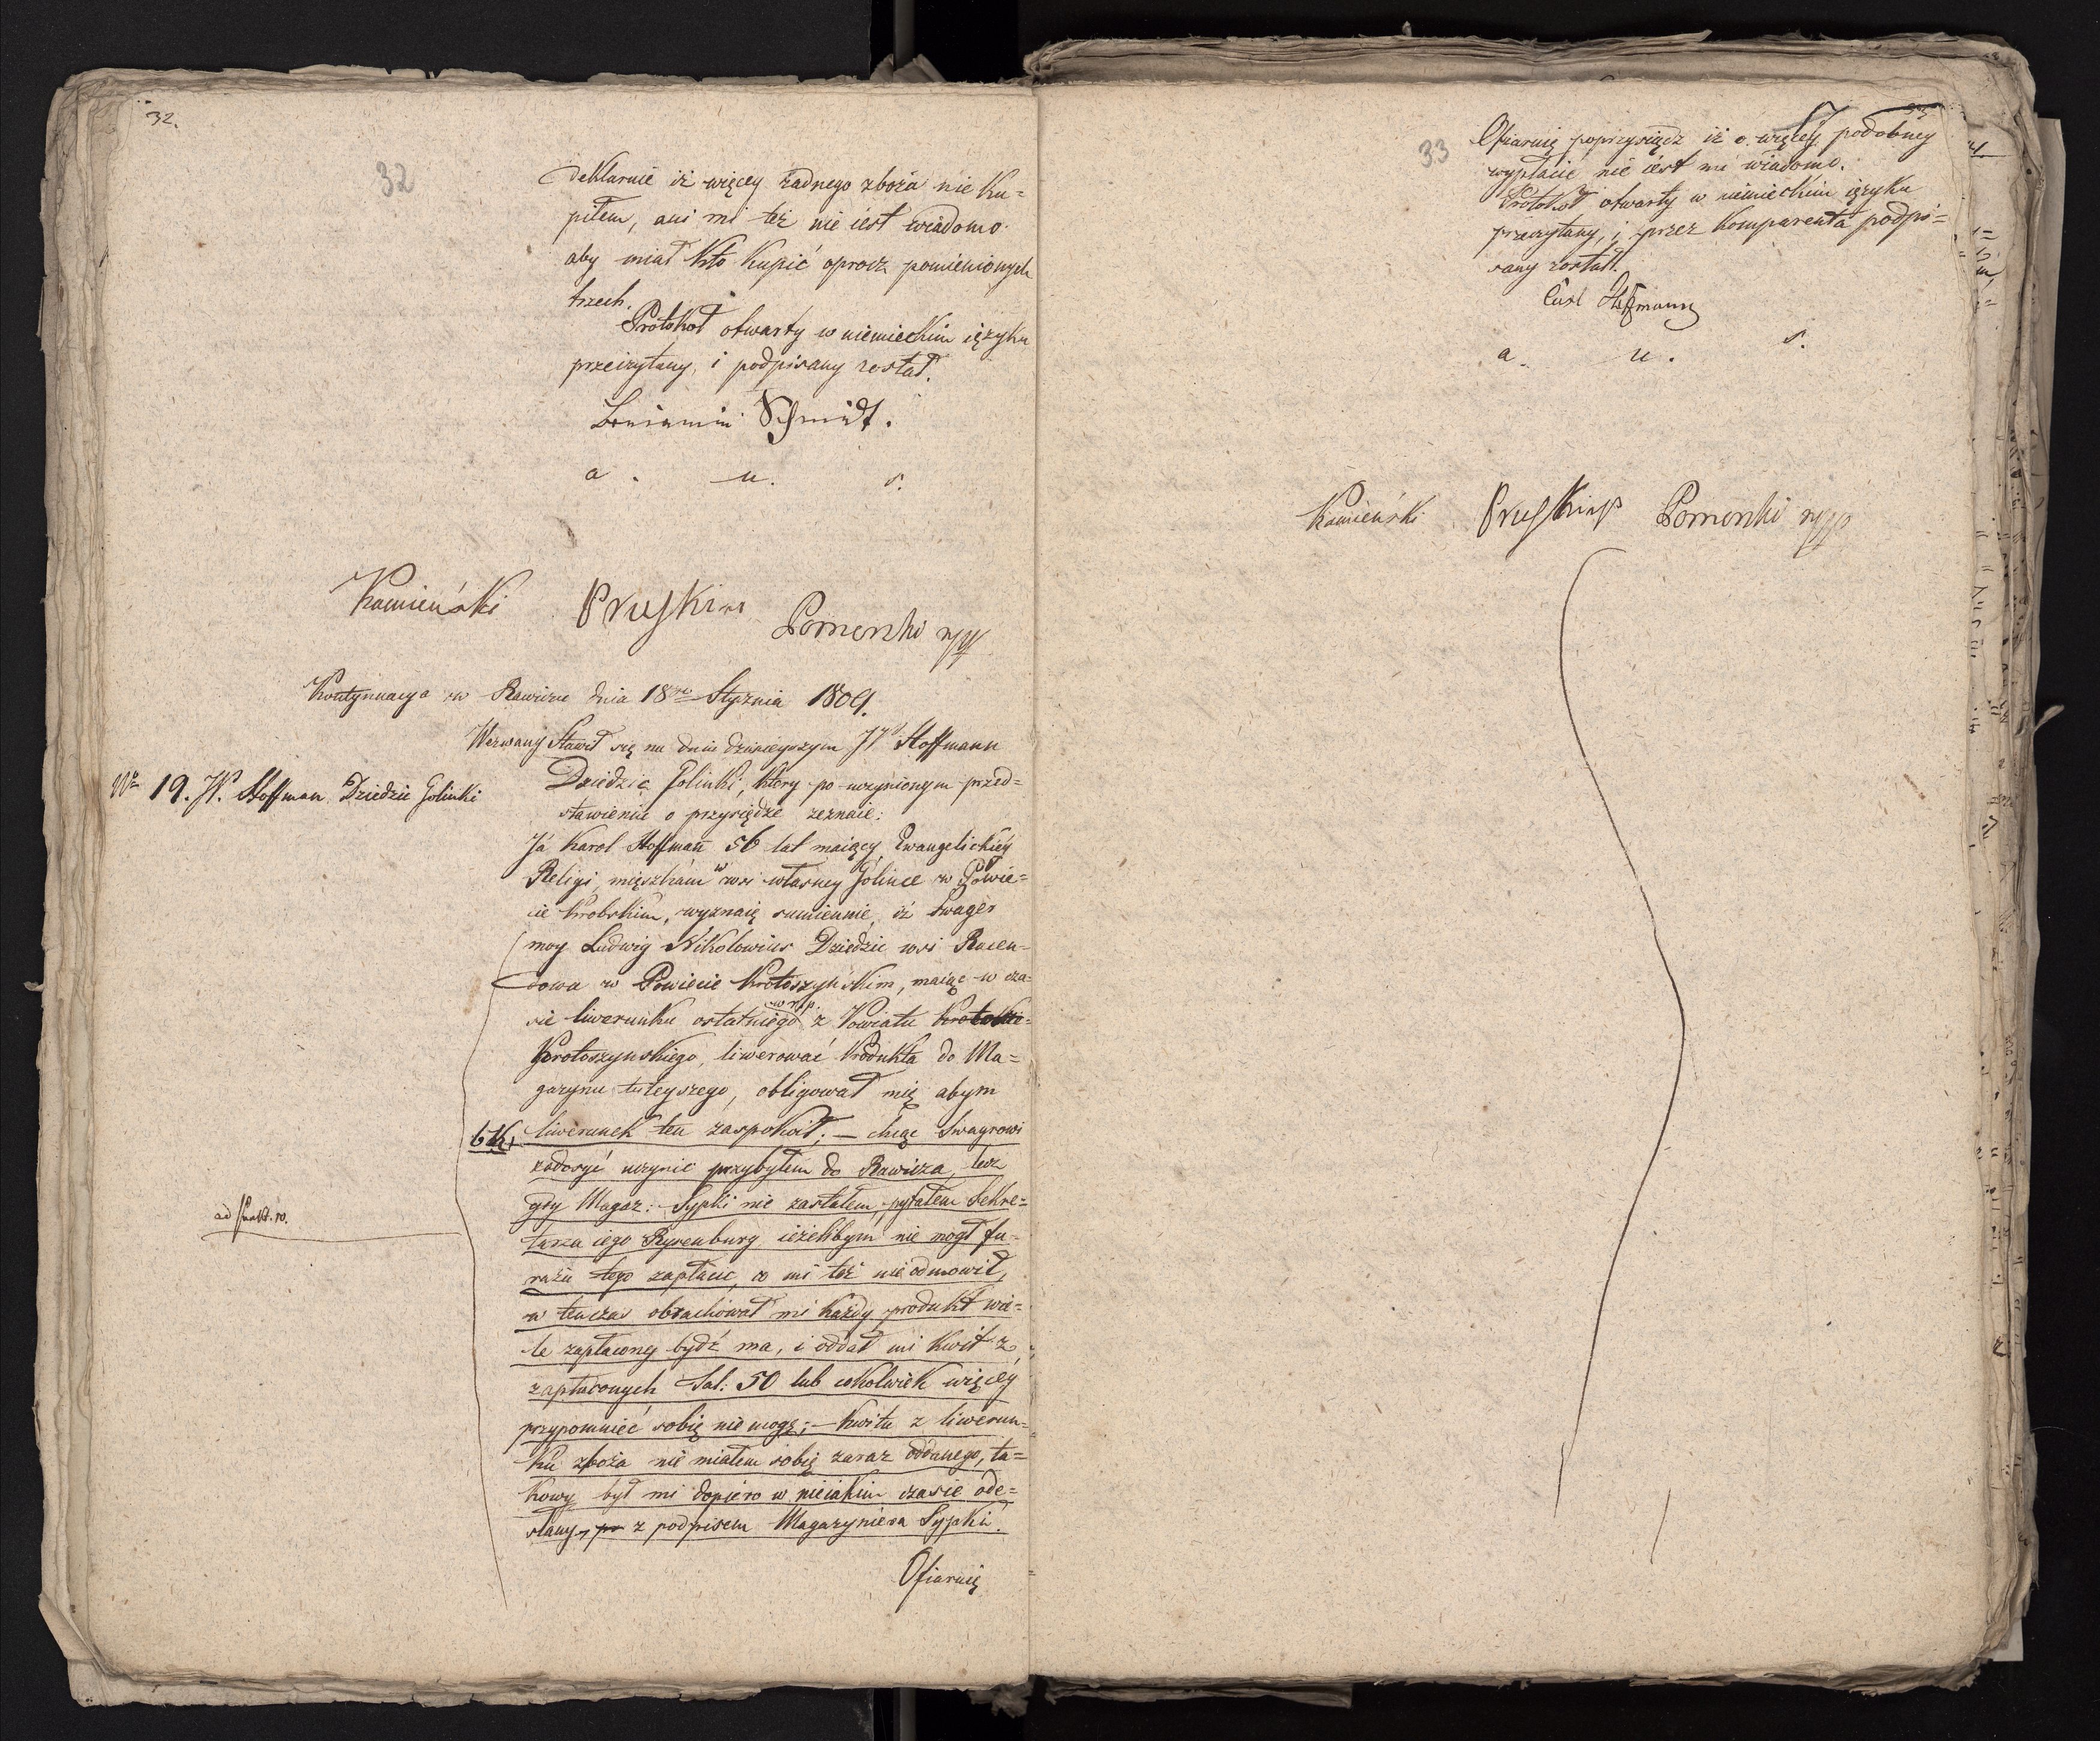 32.
32
deklaruie iż więcey żadnego zboża nie ku=
piłem, ani mi też nie iest wiadomo
aby miał kto kupić oprocz pomienionych
trzech.
Protokoł otwarty w niemieckim ięzyku
przeczytany, i podpisany został.
Beniamin Schmidt.
a. u. s.
Kamieński Pruski Pomorski mp
Kontynuacya w Rawiczu dnia 18 Stycznia 1809.
Wezwany stawił się na dniu dzisieyszym JP Hoffmann
Nr 19. JP. Hoffman Dziedzic Golinki
Dziedzic Golinki, ktory po uczynionym przed=
stawieniu o przysiędze zeznaie:
Já Karol Hoffmañ 56 lat maiący Ewangelickiey
Religi, mięszkám w wsi własney Golince w Powie=
cie Krobskim, wyznaię sumiennie, iż Swager
moy Ludwig Nikolowius Dziedzic wsi Rozen=
dowa w Powiecie Krotoszyńskim, maiąc w cza=
sie liwerunku ostatniego w m. p. z Powiatu Krotoko=
Krotoszynskiego, liwerować Produkta do Ma=
gazynu tuteyszego, obligował mię abym
liwerunek ten zaspokoił; — chcąc Swagrowi
zadosyć uczynić przybyłem do Rawicza, lecz
gdy Magaz: Sypki nie zastałem, pytałem Sekre=
tarza iego Ryrenburg ieżelibym nie mogł fu=
ad Punkt. 10.
rażu tego zapłacić, co mi też nie odmowił,
w tenczas obrachował mi każdy produkt wie=
le zapłacony bydź ma, i oddał mi kwit z
zapłaconych Tal: 50 lub cokolwiek więcey
przypomnieć sobię nie mogę; — Kwitu z liwerun=
ku zboża nie miałem sobię zaraz oddanego, ta=
kowy był mi dopiero w nieiakim czasie ode=
słany, pr z podpisem Magazyniera Sypki.
Ofiaruię
33
Ofiaruię poprzysiądz iż o więcey podobney
wypłacie nie iest mi wiadomo.
Protokoł otwarty w niemieckim ięzyku
przeczytany, i przez Komparenta podpi=
sany został.
Carl Hoffmann
a. u. s.
Kamieński Pruski mp Pomorski mpp